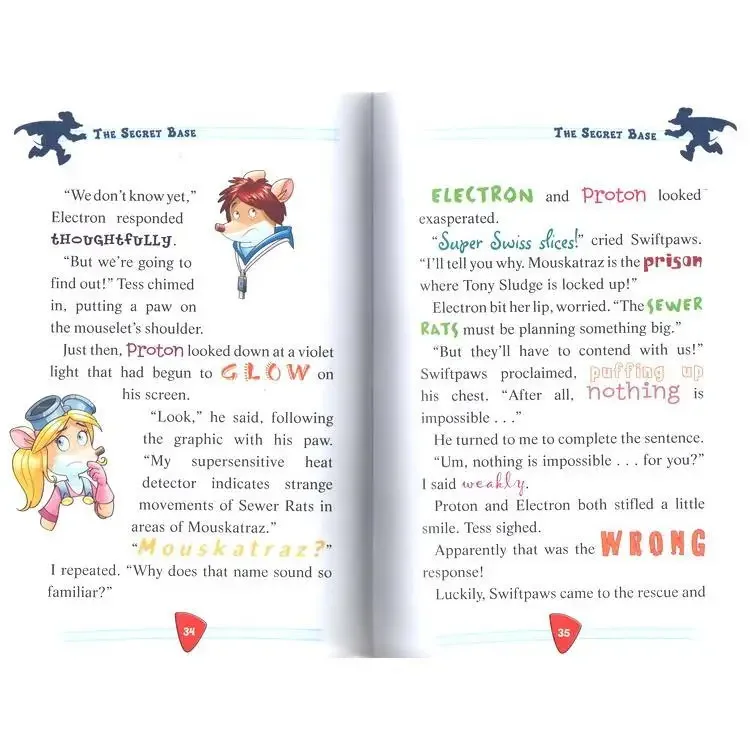 THE SECRET BASE
“We don’t know yet,”
Electron responded
tHOUGHtfULLY.
“But we’re going to
find out!” Tess chimed
in, putting a paw on
the mouselet’s shoulder.
Just then, PRoton looked down at a violet
light that had begun to GLOW on
his screen.
“Look,” he said, following
the graphic with his paw.
“My supersensitive heat
detector indicates strange
movements of Sewer Rats in
areas of Mouskatraz.”
“Mouskatraz?”
I repeated. “Why does that name sound so
familiar?”
34
THE SECRET BASE
ELECTRON and PRoton looked
exasperated.
“Super Swiss slices!” cried Swiftpaws.
“I’ll tell you why. Mouskatraz is the prison
where Tony Sludge is locked up!”
Electron bit her lip, worried. “The SEWER
RATS must be planning something big.”
“But they’ll have to contend with us!”
Swiftpaws proclaimed, puffing up
his chest. “After all, nothing is
impossible . . .”
He turned to me to complete the sentence.
“Um, nothing is impossible . . . for you?”
I said weakly.
Proton and Electron both stifled a little
smile. Tess sighed.
Apparently that was the WRONG
response!
Luckily, Swiftpaws came to the rescue and
35